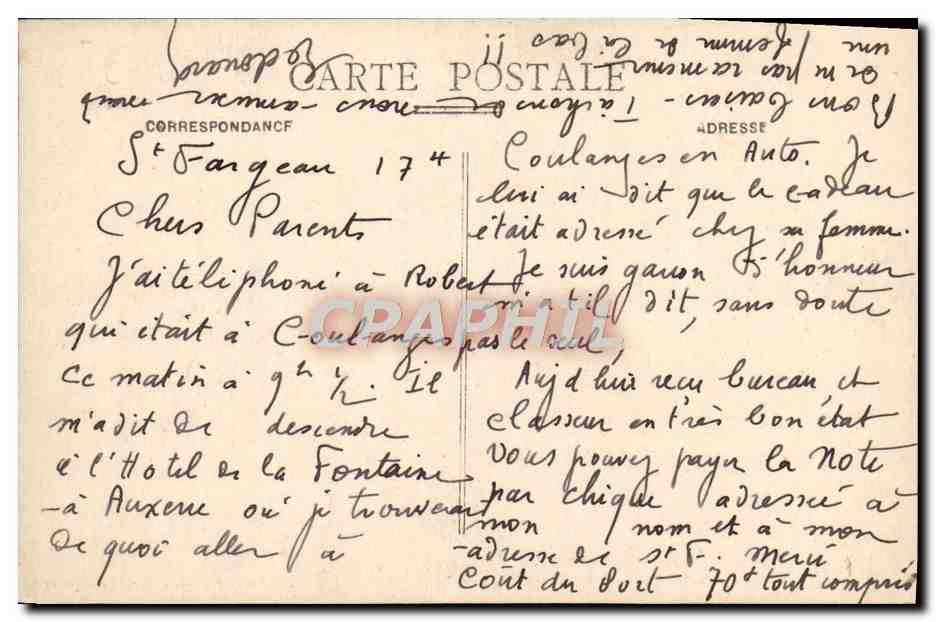 CARTE POSTALE
CORRESPONDANCE
ADRESSE
St Fargeau 17 4
Chers Parents
J'ai téléphoné à Robert
qui était à Coulanges
ce matin à 9h 1/2. Il
m'a dit de descendre
à l'Hotel de la Fontaine
à Auxerre où je trouverai
de quoi aller à
Coulanges en Auto. Je
lui ai dit que le cadeau
était adressé chez sa femme.
Je suis garçon d'honneur
m'a t il dit, sans doute
pas le seul,
Aujd'hui reçu bureau, et
classeur en très bon état
Vous pouvez payer la Note
par chèque adressé à
mon nom et à mon
adresse de St F. Merci
Coût du Port 70f tout compris
Bons baisers - Tâchons de nous amuser
et ne pas ramener
une femme de là bas !!
Edouard
CPAPHIL